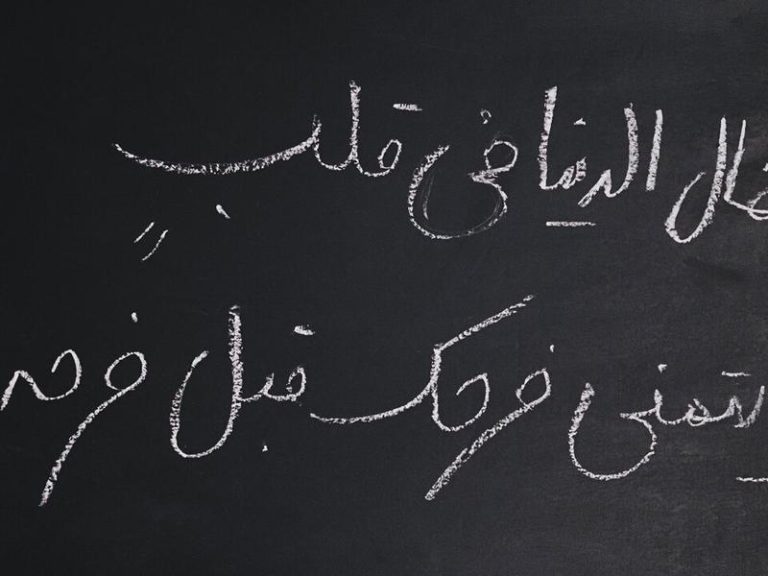 الدنيا فى قلبٍ
يتمنى فرحك قبل فرحه